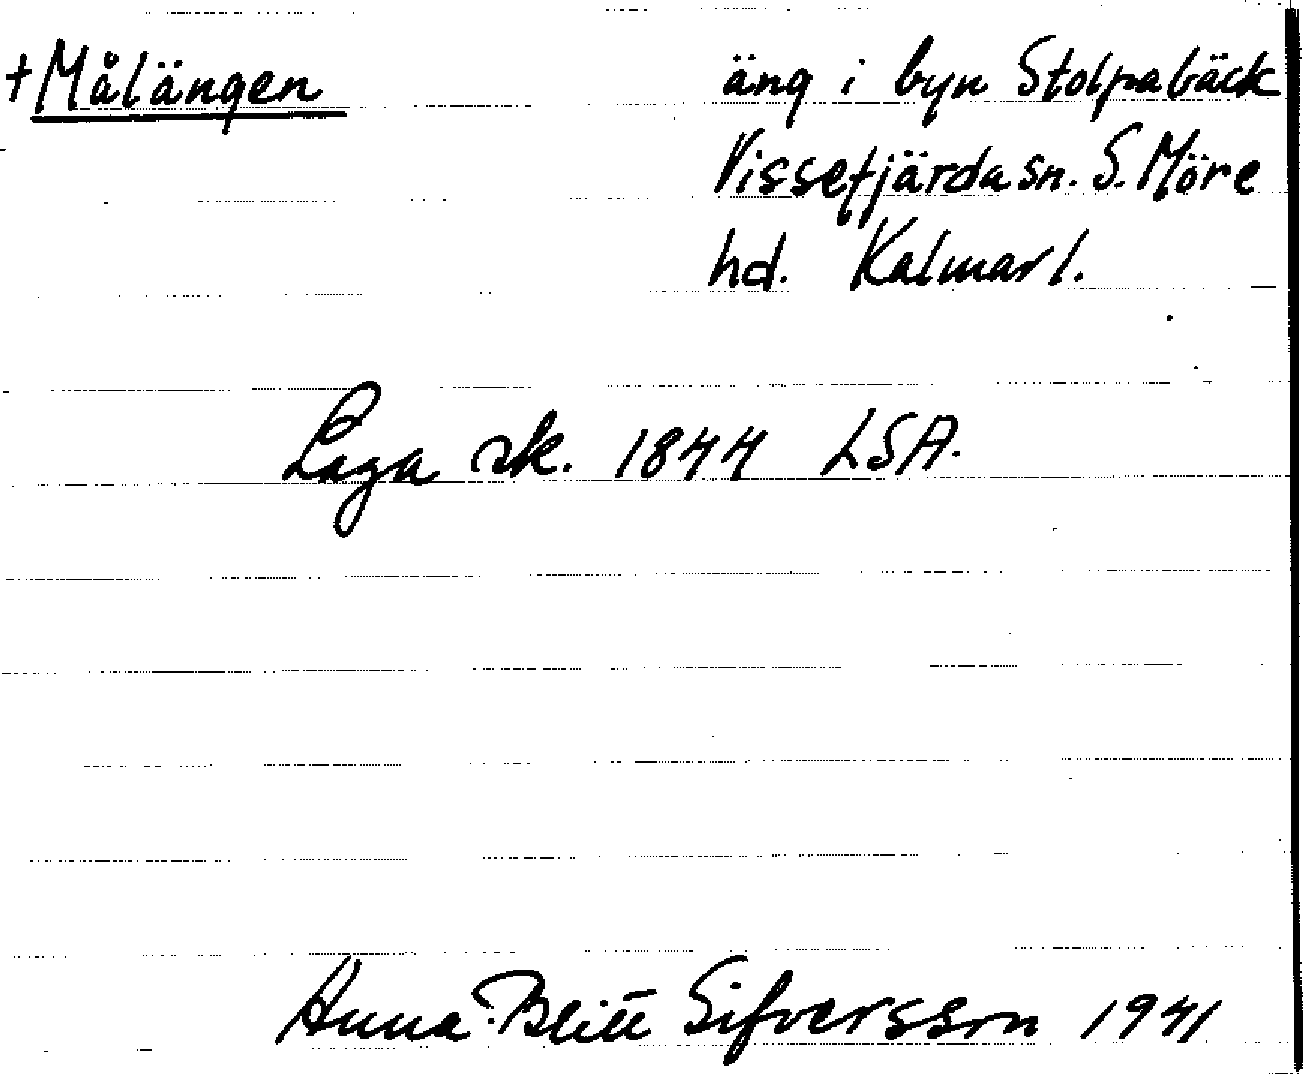 +Målängen
äng i byn Stolpabäck
Vissefjärda sn. S. Möre
hd. Kalmar l.
Laga sk. 1844 LSA.
Anna-Britt Sifversson 1941